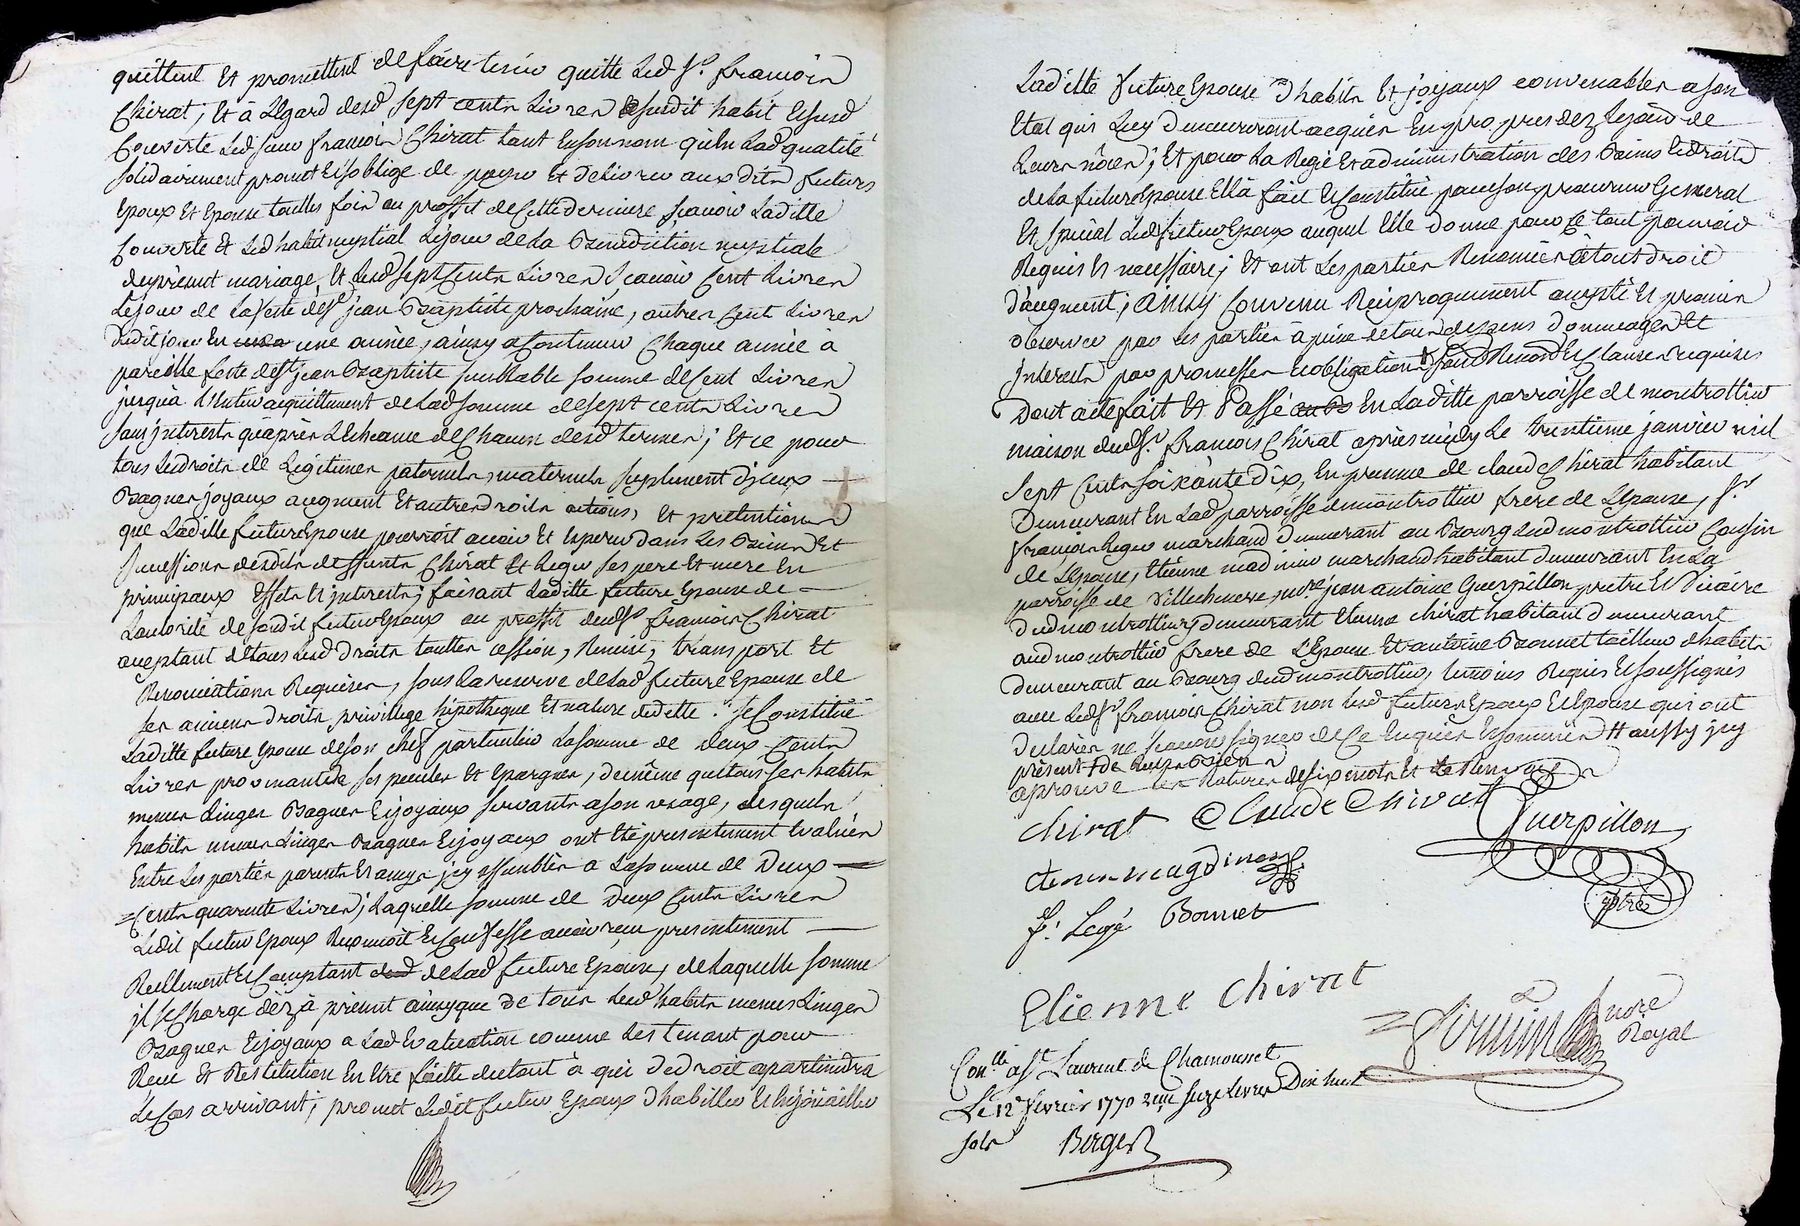 quittent Et promettent de faire tenir quitte Led Sr. francois
Chirat, Et à Légard desd Sept cents Livres susdit habit Et susd
Couverte Led sieur francois Chirat tant En son nom qu'en Lad qualité
solidairement promet Et soblige de payer Et delivrer aux dits futurs
Epoux Et Epouse touttes fois au proffit de cette derniere scavoir Laditte
Couverte Et Led habit nuptial Lejour de La Benediction nuptiale
du present mariage, Et Lesd sept Cents Livres scavoir Cent Livres
Lejour de La feste de St jean Baptiste prochaine, autres Cent Livres
dudit jour En une année, ainsy a Continuer Chaque année à
pareille feste de St jean Baptiste semblable somme de Cent Livres
jusqu'à L'Entier acquittement de Lad somme de sept cents Livres
sans jnterests qu'après L'Echeance de Chacun desd termes; Et ce pour
tous Les droits de Legitimes paternels, maternels suplement d'jceux
Bagues joyaux augment Et autres droits actions, Et pretentions
que Laditte future Epouse pourroit avoir Et Esperer dans Les Biens Et
successions desdits deffunts Chirat Et Leger ses pere Et mere En
principaux Effets Et jnterests; faisant Laditte future Epouse de
Lautorité de sondit futur Epoux au proffit dudSr francois Chirat
aceptant de tous Lesd droits touttes cession, Remise, transport Et
Renonciations Requises, sous La reserve de Lad future Epouse de
ses anciens droits privillege hipotheque Et nature de dette. se Constitüe
Laditte future Epouse de son chef particulier La somme de Deux Cents
Livres provenant de ses pecules Et Epargnes, de même que tous ses habits
menus Linges Bagues Et joyaux servants a son usage, Lesquels
habits menus Linges Bagues Et joyaux ont Eté presentement Evalués
Entre Les parties parents Et amys jcy assemblés a La somme de Deux
Cents quarante Livres; Laquelle somme de Deux Cents Livres
Ledit futur Epoux Reconnoit Et Confesse avoir receu presentement
Reellement Et Comptant de Lad future Epouse, de Laquelle somme
jl se Charge dèz à present ainsy que de tous Lesd habits menus Linges
Bagues Et joyaux a Lad Evaluation comme Les tenant pour
Receu Et Restitution En Etre faitte du tout à qui de droit apartiendra
Le Cas arrivant; promet Ledit futur Epoux d'habiller Et Enjoüailler
Laditte future Epouse d'habits Et joyaux convenables a son
Etat qui Luy demeureront acquis En propres dez Lejour de
Leurs nôces; Et pour La Regie Et administration des Biens Et droits
de La future Epouse Ella fait Et Constitüe pour son procureur General
Et special Led futur Epoux auquel Elle donne pour ce tout pouvoir
Requis Et necessaire; Et ont Les parties Renoncées à tout droit
d'augment; ainsy Convenu Reciproquement accepté Et promis
observer par Les parties à peine de tous depens dommages Et
jnterests par promesses Et obligations # Renonc Et Clauses requises
Dont acte fait Et Passé En Laditte parroisse de montrottier
maison dudSr. francois Chirat après midy Le trentieme janvier mil
Sept Cents soixante Dix, En presence de claude Chirat habitant
Demeurant En Lad parroisse de montrottier frere de L'Epouse, Sr
francois Leger marchand demeurant au Bourg dud montrottier Cousin
de L'Epouse, Etienne madinier marchand habitant demeurant En La
parroisse de Villechenève, mre jean antoine Guerpillon pretre Et Vicaire
dud montrottier y demeurant Etienne chirat habitant demeurant
aud montrottier frere de L'Epouse Et antoine Bonnet tailleur d'habits
demeurant au Bourg dud montrottier, temoins Requis Et soussignés
avec LedSr francois Chirat non Lesd futurs Epoux Et Epouse qui ont
declarées ne scavoir signer de ce Enquis Et sommées # aussy jcy
présent
aprouvé Les Ratures de six mots Et Le Renvoy
Chirat Claude Chirat Guerpillon
ptre
f. Legé Bonnet
Etienne Chirat
nore
Royal
Conllé a St Laurent de Chamousset
Le 12e février 1770 reçu seize livres Dix huit
sols Berger